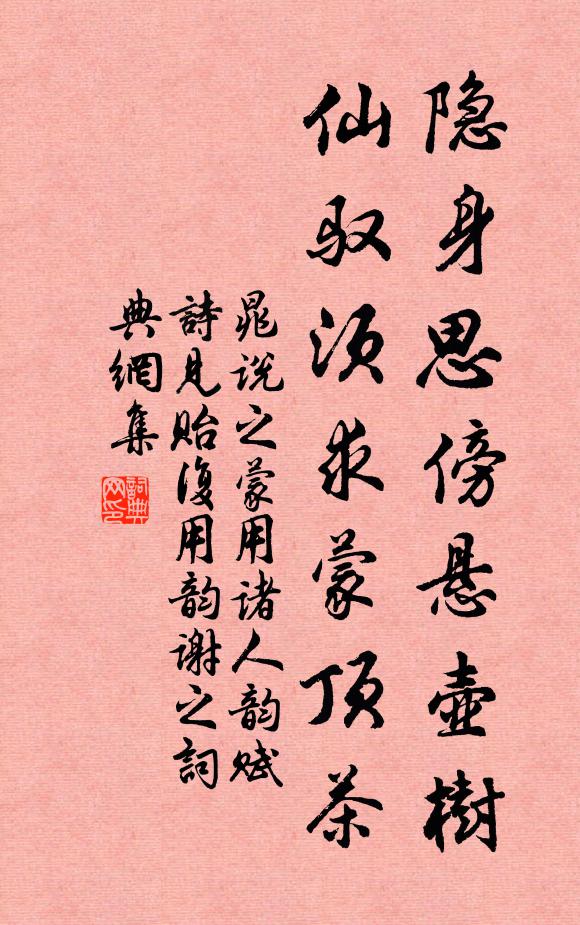 隐身思傍悬壶樹
仙驭须求蒙顶茶
晁说之蒙用诸人韵赋
詩见贻復用韵谢之詞
典網集
詞典网印